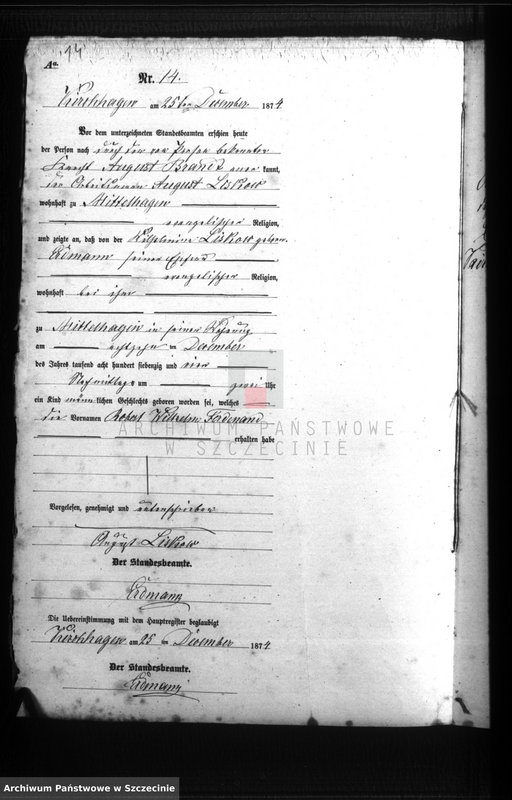 14
Aa.
Nr. 14.
Kirchhagen am 25ten December 1874
Vor dem unterzeichneten Standesbeamten erschien heute
der Person nach durch den von Person bekannten
Knecht August Brandt aner kannt,
der Arbeitsmann August Liskow
wohnhaft zu Mittelhagen
evangelischer Religion,
und zeigte an, daß von der Wilhelmine Liskow geborne
Erdmann seiner Ehefrau
evangelischer Religion,
wohnhaft bei ihm
zu Mittelhagen in seiner Wohnung
am achtzehn ten December
des Jahres tausend acht hundert siebenzig und vier
Nachmittags um zwei Uhr
ein Kind männ lichen Geschlechts geboren worden sei, welches
die Vornamen Robert Wilhelm Ferdinand
erhalten habe
Vorgelesen, genehmigt und unterschrieben
August Liskow
Der Standesbeamte.
Erdmann
Die Uebereinstimmung mit dem Hauptregister beglaubigt
Kirchhagen am 25 ten December 1874
Der Standesbeamte.
Erdmann
ARCHIWUM PAŃSTWOWE
W SZCZECINIE
Archiwum Państwowe w Szczecinie